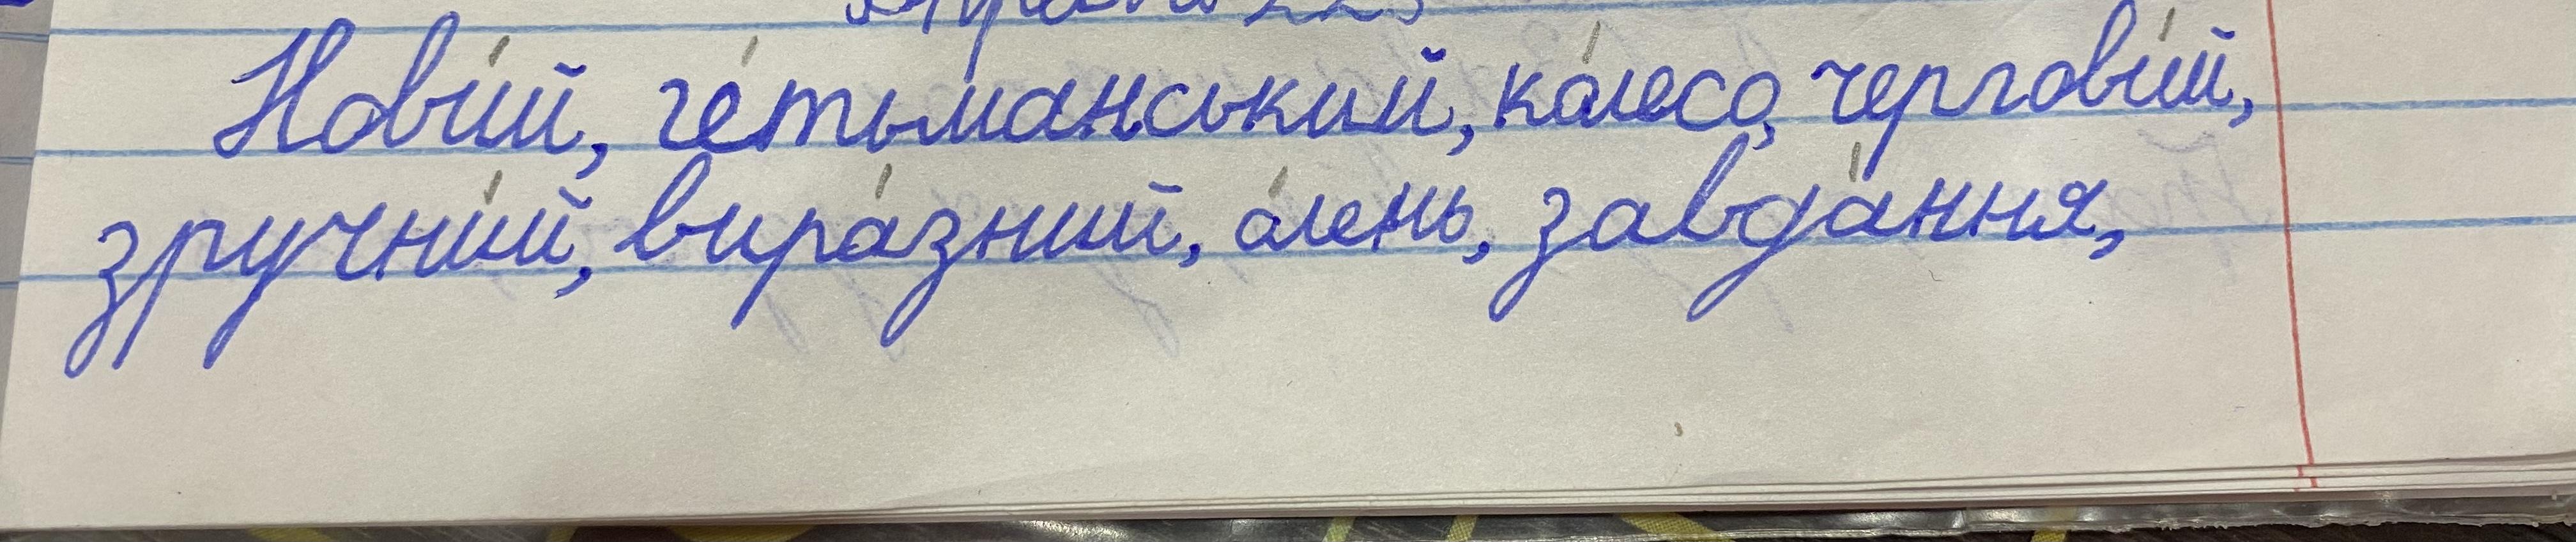 Нови́й, ге́тьманський, ко́лесо, чергови́й,
зручни́й, вира́зний, о́лень, завда́ння,